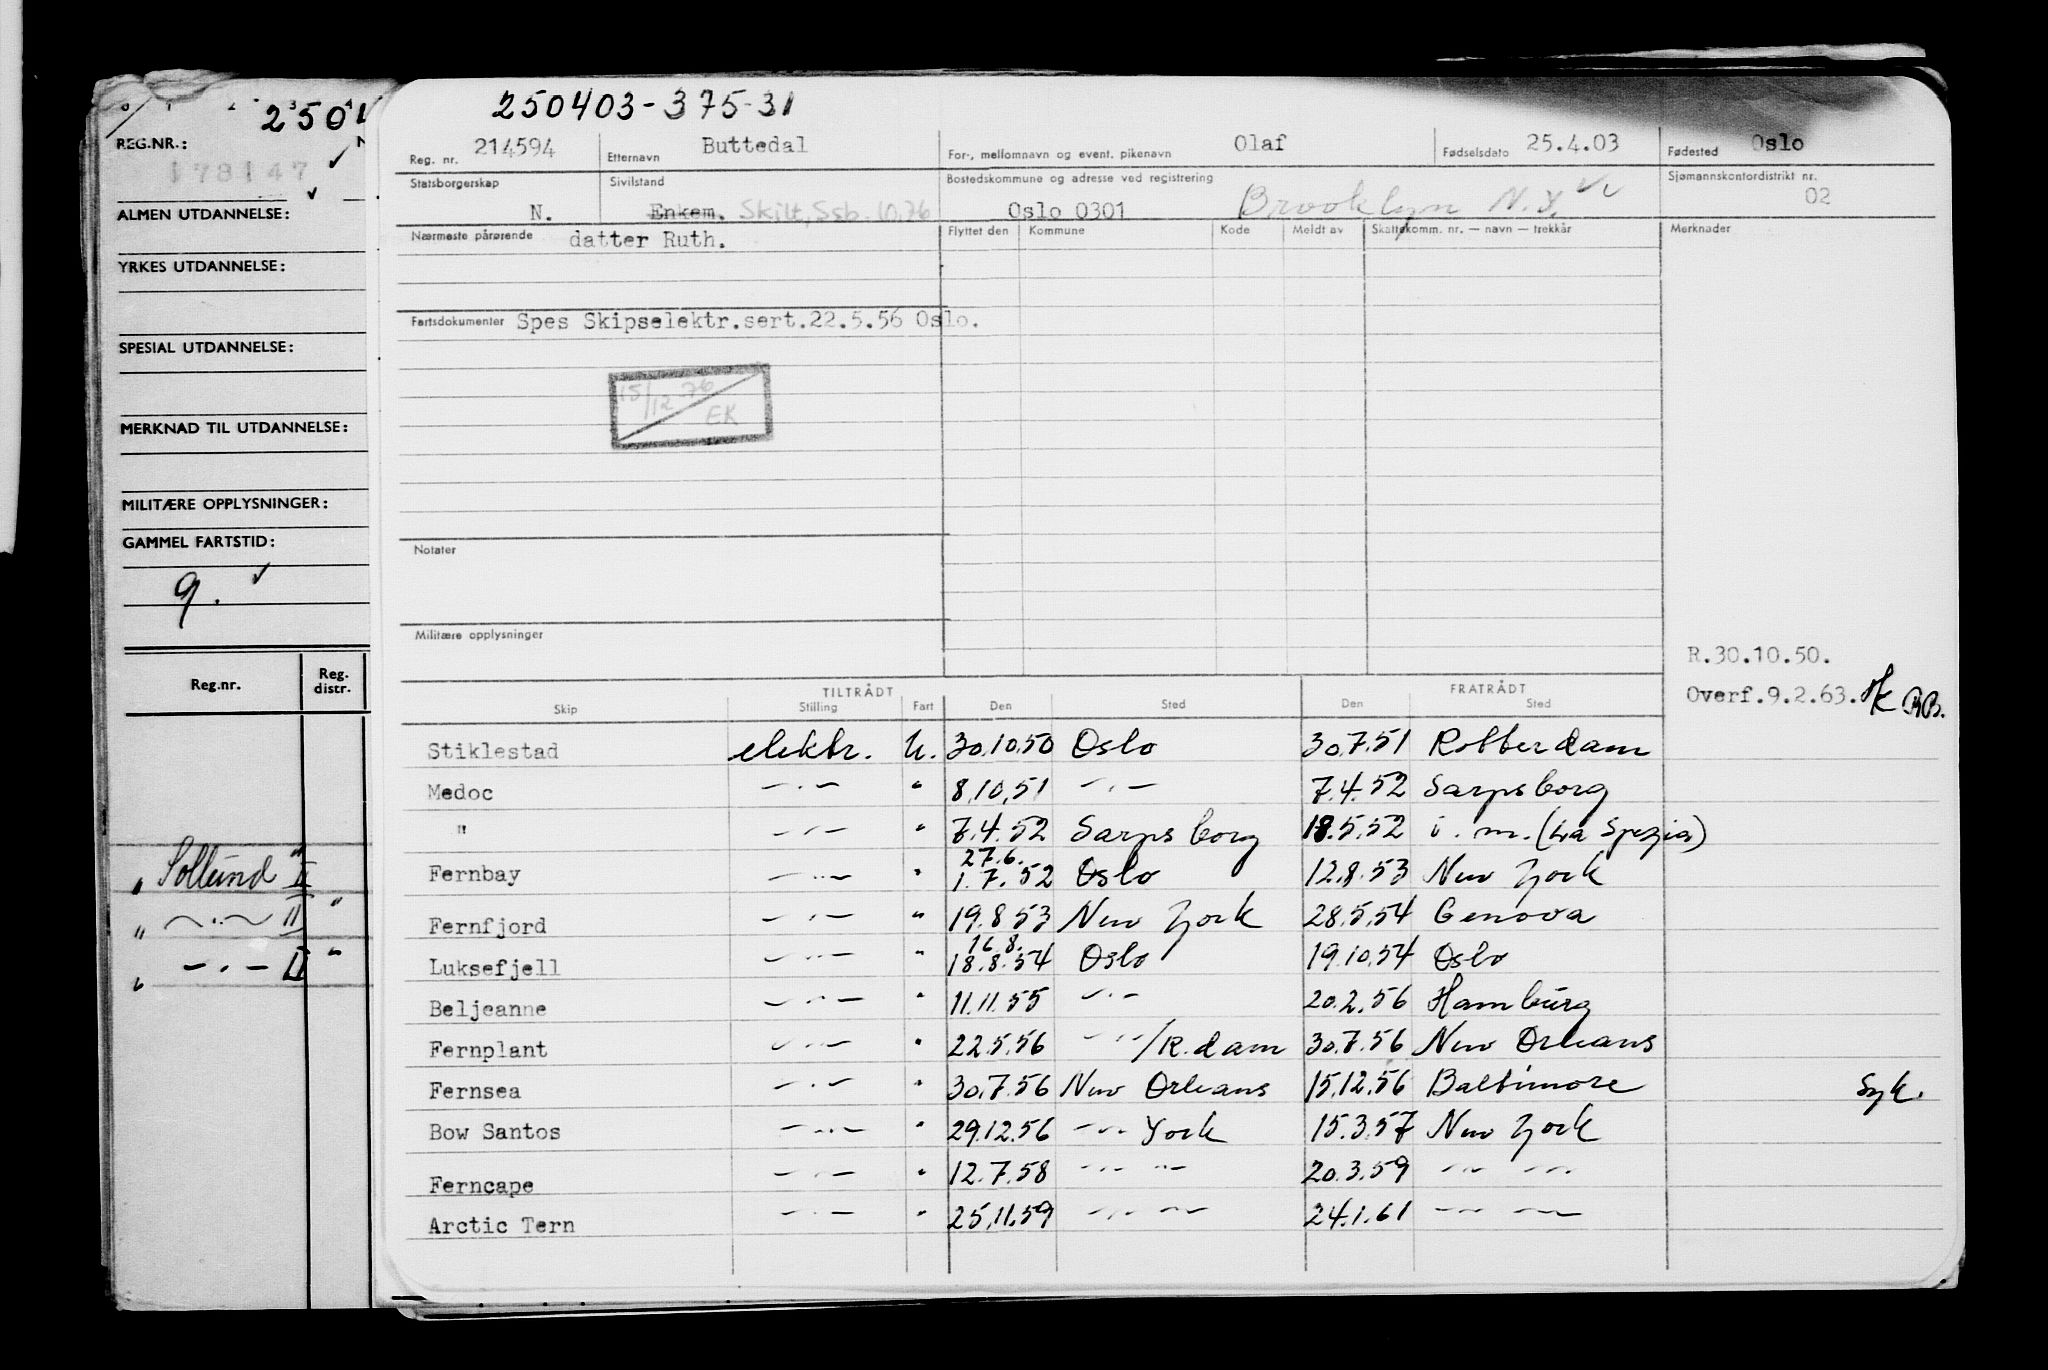 250403-375-31
Reg. nr. 214594 Etternavn Buttedal For-, mellomnavn og event. pikenavn Olaf Fødselsdato 25.4.03 Fødested Oslo
Statsborgerskap N. Sivilstand Enkem. Skilt, Ssb. 10.76 Bostedskommune og adresse ved registrering Oslo 0301 Brooklyn N.Y. Sjømannskontordistrikt nr. 02
Nærmeste pårørende datter Ruth. Flyttet den Kommune Kode Meldt av Skattekomm. nr. — navn — trekkår Merknader
Fartsdokumenter Spes Skipselektr.sert.22.5.56 Oslo.
15/12 76 EK
Notater
Militære opplysninger
R.30.10.50.
Overf.9.2.63.
TILTRÅDT FRATRÅDT
Skip Stilling Fart Den Sted Den Sted
Stiklestad elektr. U. 30.10.50 Oslo 30.7.51 Rotterdam
Medoc —·— " 8.10.51 —·— 7.4.52 Sarpsborg
" —·— " 7.4.52 Sarpsborg 18.5.52 i.m. (La Spezia)
27.6.
Fernbay —··— " 1.7.52 Oslo 12.8.53 New York
Fernfjord —·— " 19.8.53 New York 28.5.54 Genova
16.8.
Luksefjell —··— " 18.8.54 Oslo 19.10.54 Oslo
Beljeanne —·— " 11.11.55 —·— 20.2.56 Hamburg
Fernplant —··— " 22.5.56 —··—/R.dam 30.7.56 New Orleans
Fernsea —·— " 30.7.56 New Orleans 15.12.56 Baltimore Syk.
Bow Santos —··— " 29.12.56 —·— York 15.3.57 New York
Ferncape —·— " 12.7.58 —··— —··— 20.3.59 —··— —··—
Arctic Tern —·— " 25.11.59 —··— —··— 24.1.61 —··— —··—
2501
REG.NR.:
178147
ALMEN UTDANNELSE:
YRKES UTDANNELSE:
SPESIAL UTDANNELSE:
MERKNAD TIL UTDANNELSE:
MILITÆRE OPPLYSNINGER:
GAMMEL FARTSTID:
9.
Reg.nr. Reg. distr.
" Sollund II "
" —··— II "
" —·— II "